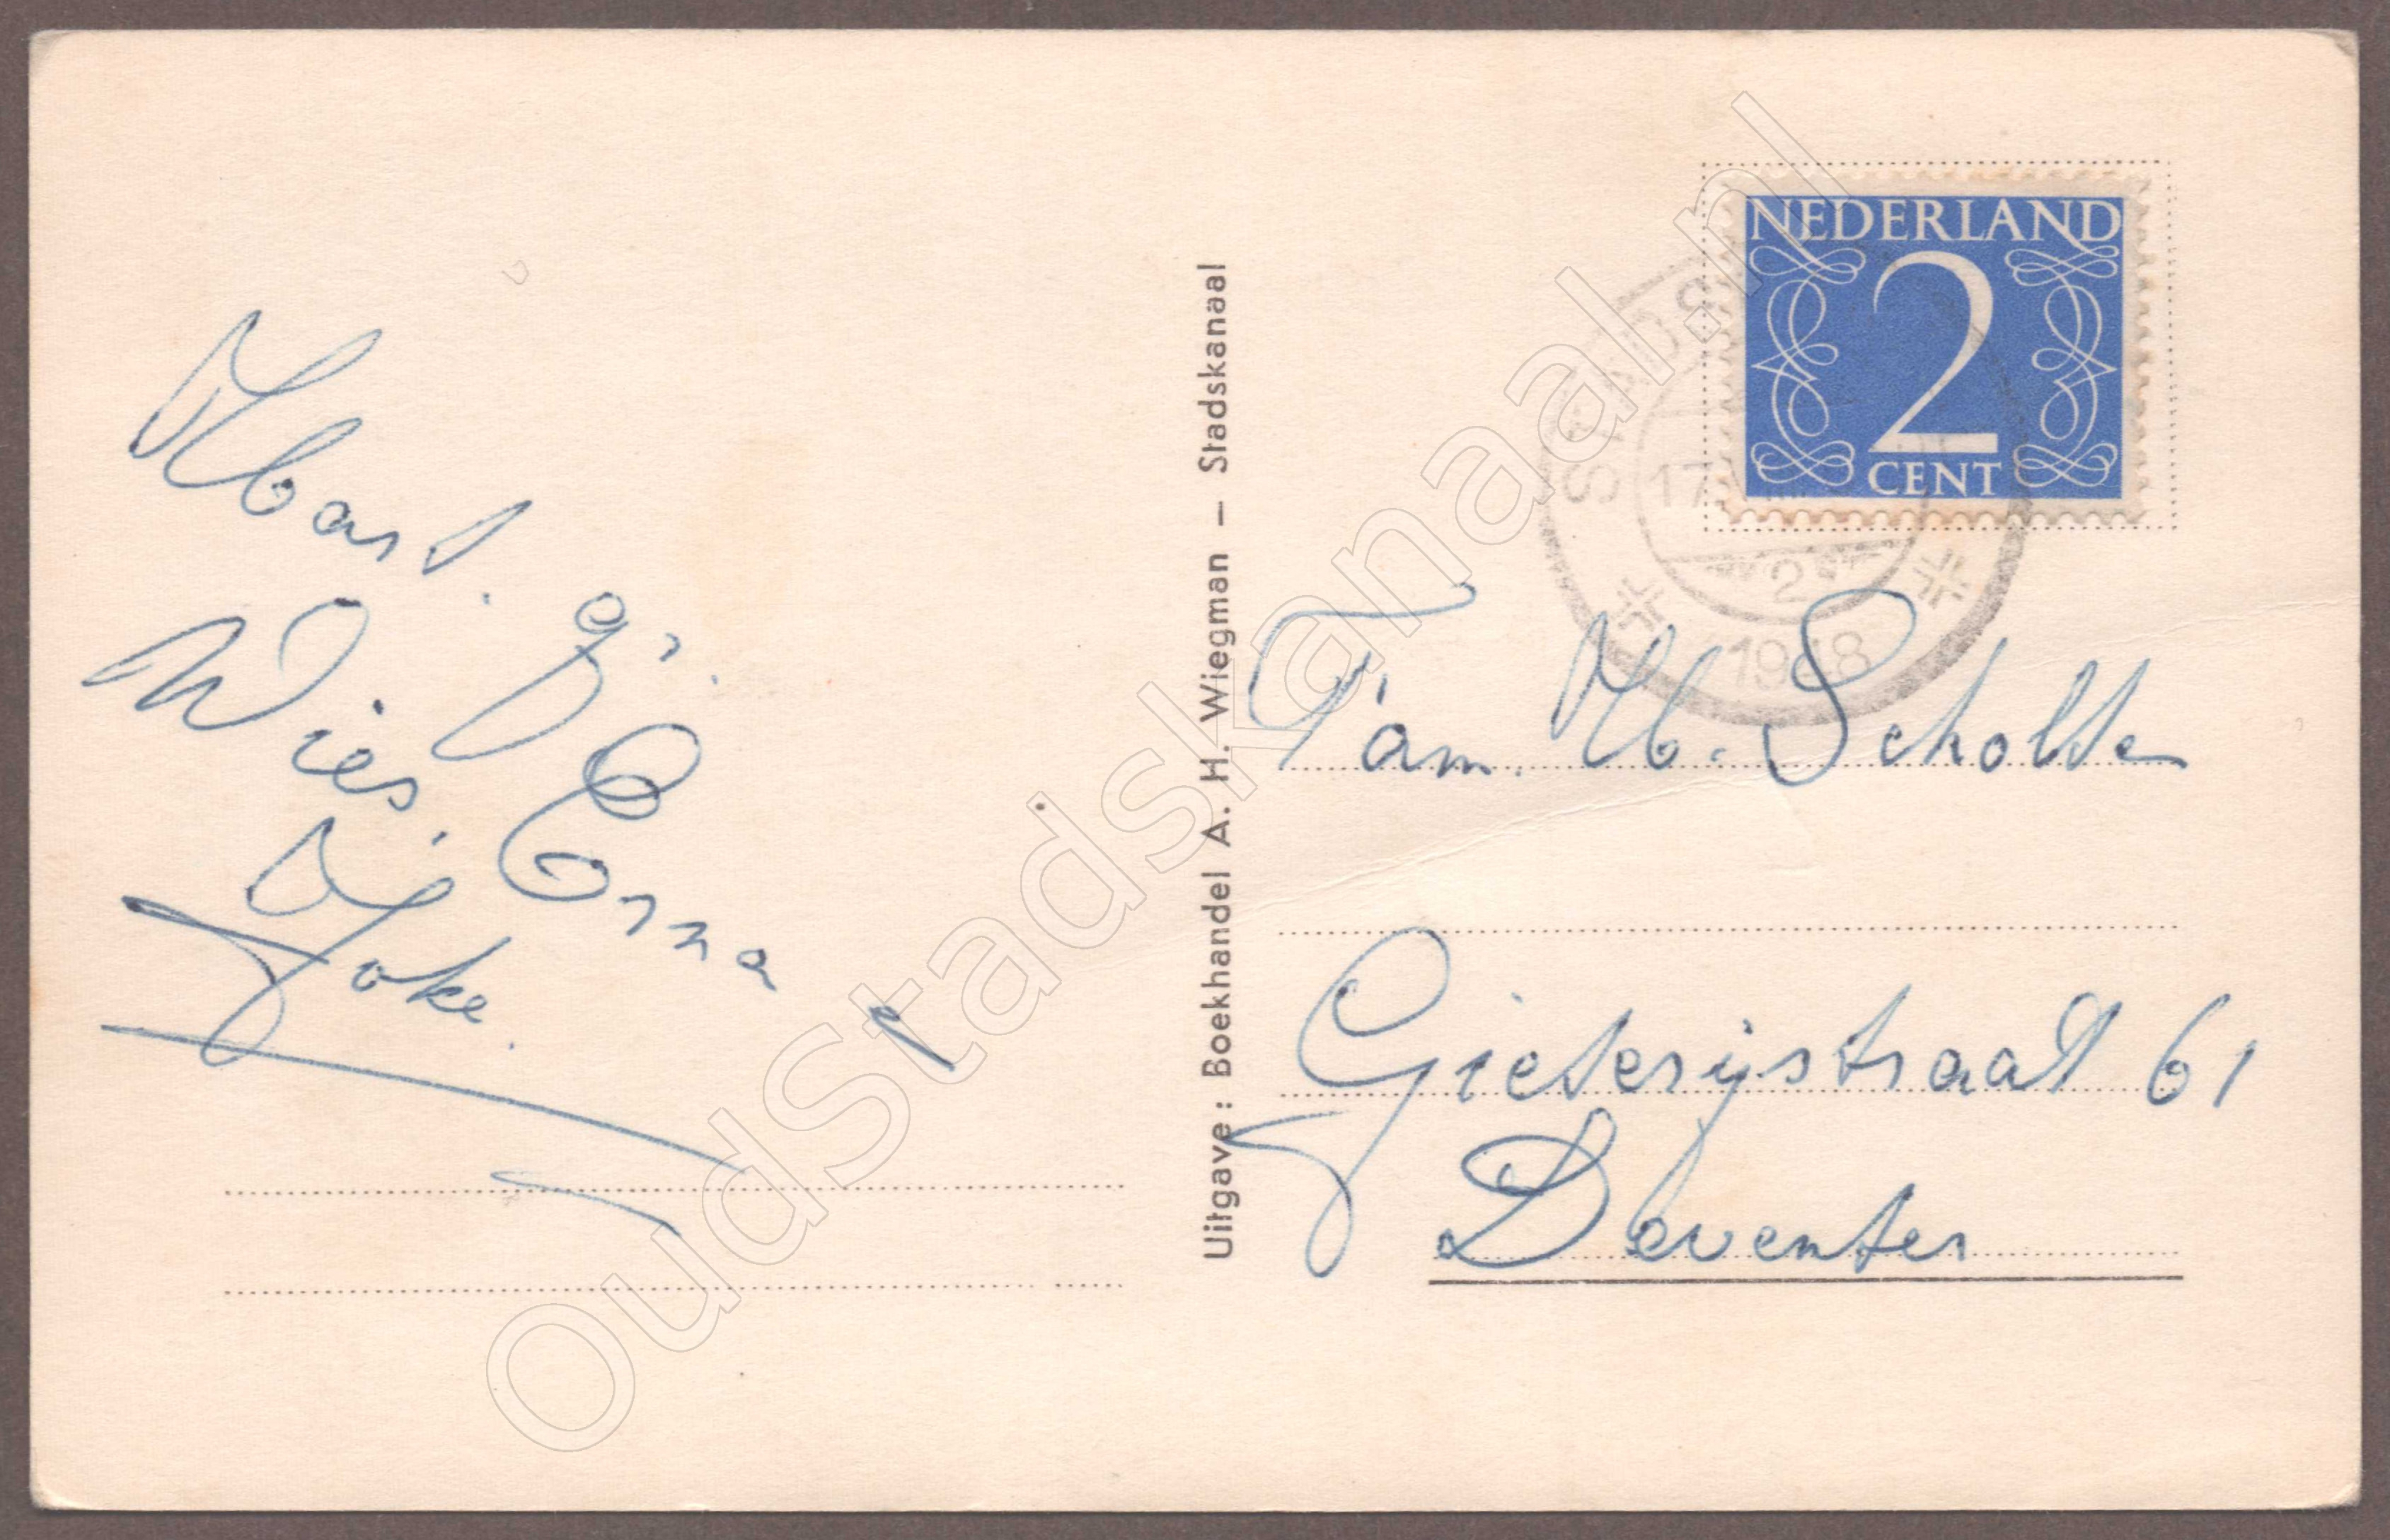 Hbart. g.
Wies. Erna
Joke.
Uitgave: Boekhandel A. H. Wiegman — Stadskanaal
NEDERLAND
2
CENT
STADS
17
2
1948
Fam. H. Scholte
Gieterijstraat 61
Deventer
OudStadskanaal.nl